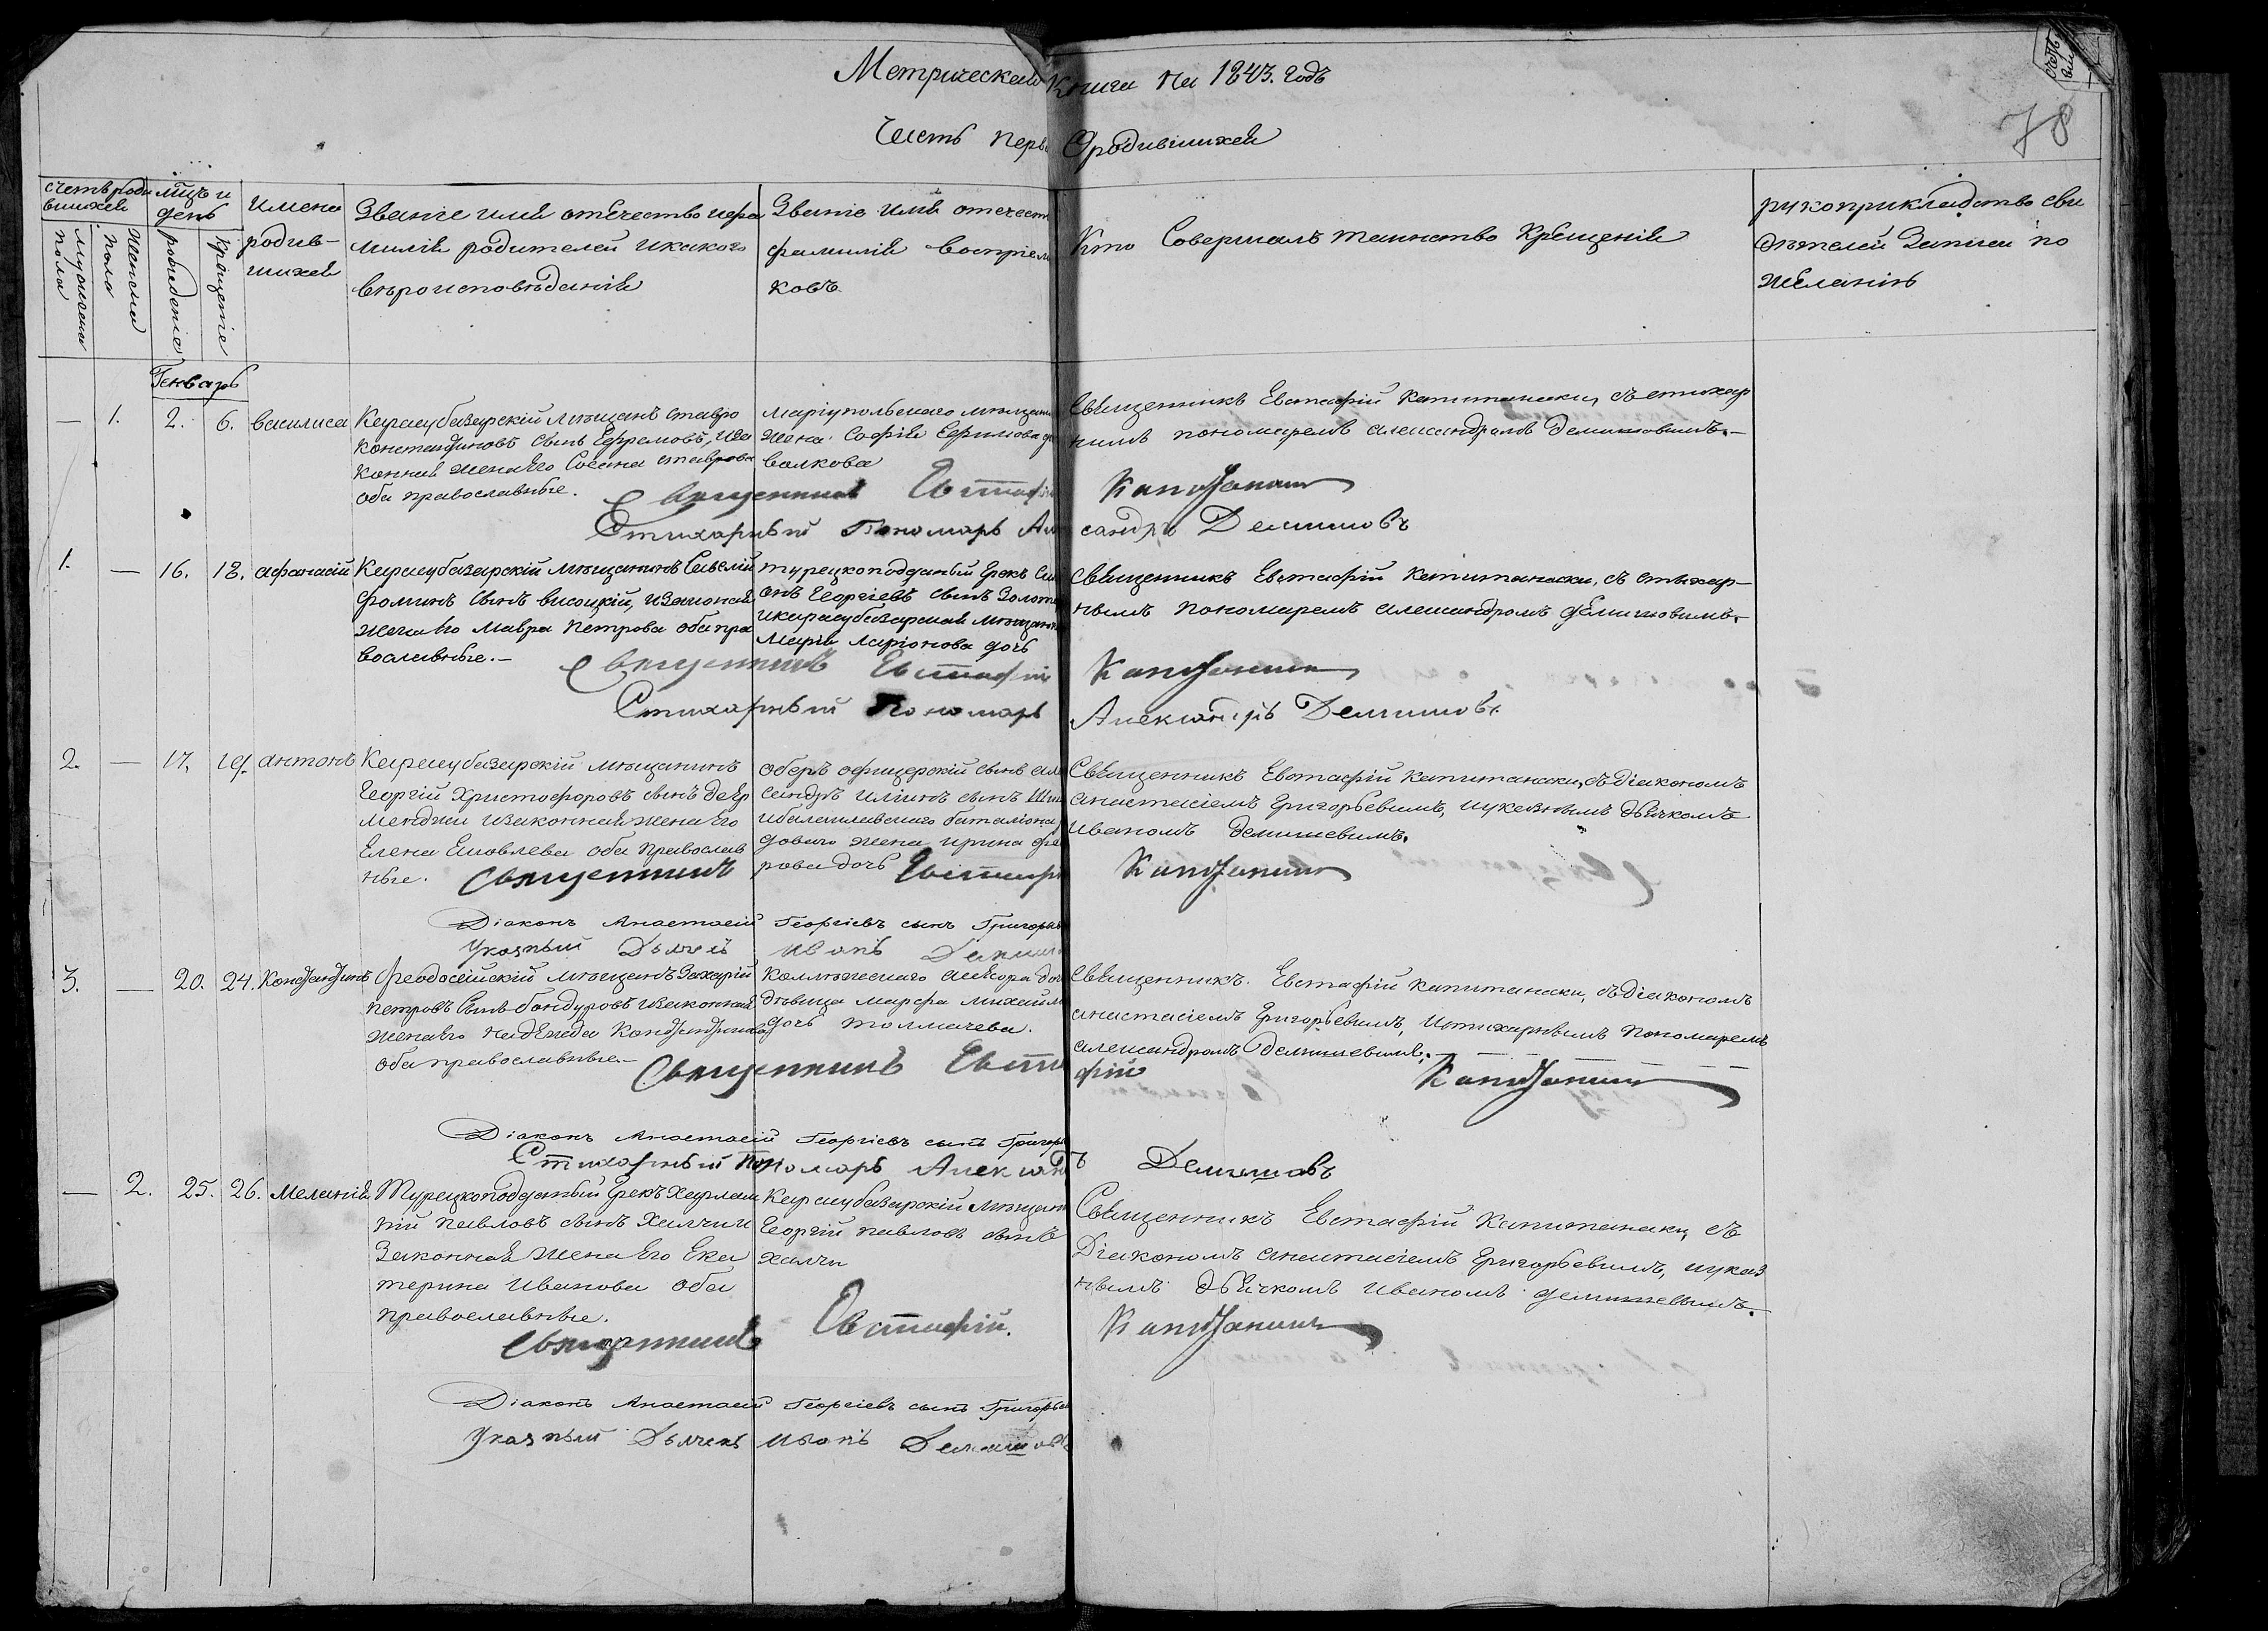 Метрическая Книга на 1843. Годъ
Часть перв Ородившихся
78
счетъ роди
вшихся
мцъ и
день
Имена
родив-
шихся
мужеска
пола
женска
пола
рожденіе
крещеніе
Званіе имя отечество ифа
милія родителей икакого
вѣроисповѣданія
Званіе имя отечест
фамилія воспріем
ковъ
Кто Совершалъ таинство Крещенія
рукоприкладство сви
дѣтелей Записи по
желанію
Генварь
— 1. 2. 6. василиса
Карасубазарскій мѣщанъ ставро
Константиновъ сынъ Ефремовъ, иза
конная жена его Сосана ставрова
оба православные.
маріупольскаго мѣщани
жена Софія Ефимова до
волкова
Священникъ Евстафій капитанаки, състихар
нымъ пономаремъ александромъ демишовымъ.—
Священникъ Евстафій Капитанаки
Стихарный Пономарь Александръ Демишовъ
1. — 16. 18. афанасій
Карасубазарскій мѣщанинъ Савелій
фоминъ сынъ висоцкій, изаконая
жена его Мавра Петрова оба пра
вославные.—
турецкоподданый Грекъ Си
онъ Георгіевъ сынъ Золот
икарасубазарская мѣщанк
Марія Ларіонова дочь
Священникъ Евстафій Капитанаки, съ стихар-
нымъ пономаремъ александромъ демишовымъ.
Священникъ Евстафій Капитанаки
Стихарный Пономарь Александръ Демишовъ.
2. — 17. 19. антонъ
Карасубазарскій мѣщанинъ
Георгій Христофоровъ сынъ деяр
менджи изаконная жена его
Елена Яковлева оба православ
ные.
оберъ офицерскій сынъ але
сандръ Иліинъ сынъ
ибалаклавскаго баталіона
дового жена ирина фе
рова дочь
Священникъ Евстафій капитанаки, съдіакономъ
анастасіемъ григорьевымъ, иуказнымъ дьячкомъ
иваномъ демишевымъ.
Священникъ Евстафій Капитанаки
Діаконъ Анастасій Георгіевъ сынъ Григорьев
Указный Дьячекъ Иванъ Демишо
3. — 20. 24. Константинъ
Феодосійскій мѣщанъ Захарій
петровъ сынъ бондуровъ изаконная
жена его надежда Константинова
оба православные.—
Коллежскаго асесора доч
дѣвица марфа михаил
дочь толмачева.
Священникъ Евстафій капитанаки, съдіакономъ
анастасіемъ григорьевымъ, истихарнымъ пономаремъ
александромъ демишевымъ.
Священникъ Евстафій Капитанаки
Діаконъ Анастасій Георгіевъ сынъ Григорь
Стихарный Пономарь Александръ Демишовъ
— 2. 25. 26. Меланія
Турецкоподданый Грекъ харлам
пій павловъ сынъ Халчи и
Законная жена его Ека
терина Иванова оба
православные.
Карасубазарскій мѣщан
Георгій павловъ сынъ
халчи
Священникъ Евстафій Капитанаки, съ
Діакономъ анастасіемъ григорьевымъ, иуказ
нымъ дьячкомъ иваномъ демишевымъ.
Священникъ Евстафій. Капитанаки
Діаконъ Анастасій Георгіевъ сынъ Григорьев
Указный Дьячекъ Иванъ Демишовъ